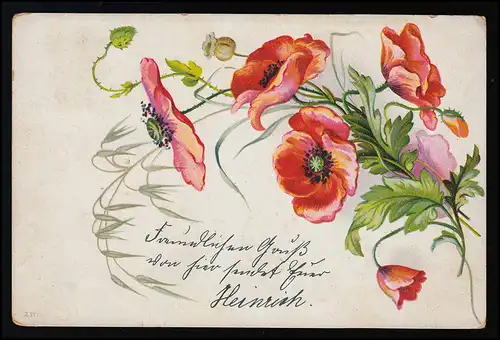 Freundlichen Gruß
von hier sendet Euer
Heinrich.